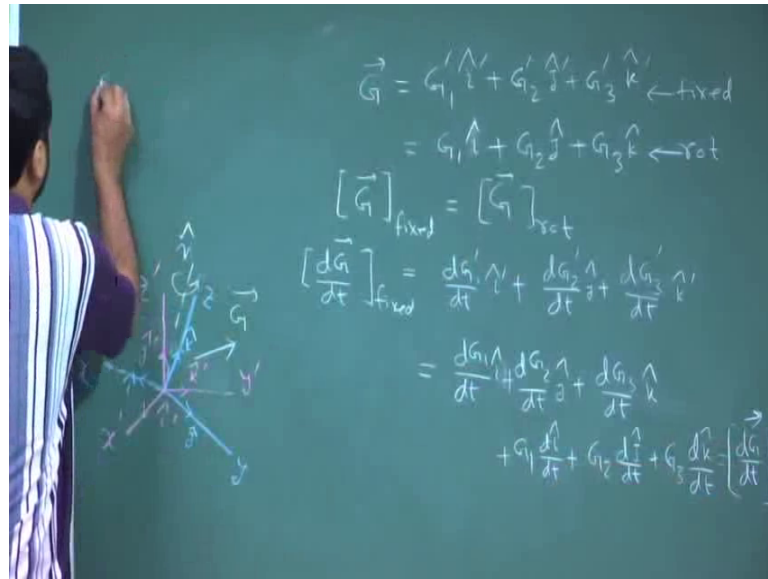 G⃗ = G₁' î' + G₂' ĵ' + G₃' k̂' ← fixed
= G₁ î + G₂ ĵ + G₃ k̂ ← rot
[G⃗]fixed = [G⃗]rot
[dG⃗/dt]fixed = dG₁'/dt î' + dG₂'/dt ĵ' + dG₃'/dt k̂'
= dG₁/dt î + dG₂/dt ĵ + dG₃/dt k̂
+ G₁ dî/dt + G₂ dĵ/dt + G₃ dk̂/dt = [dG⃗/dt
n̂
z'
z
G⃗
k̂
y'
x
x'
y